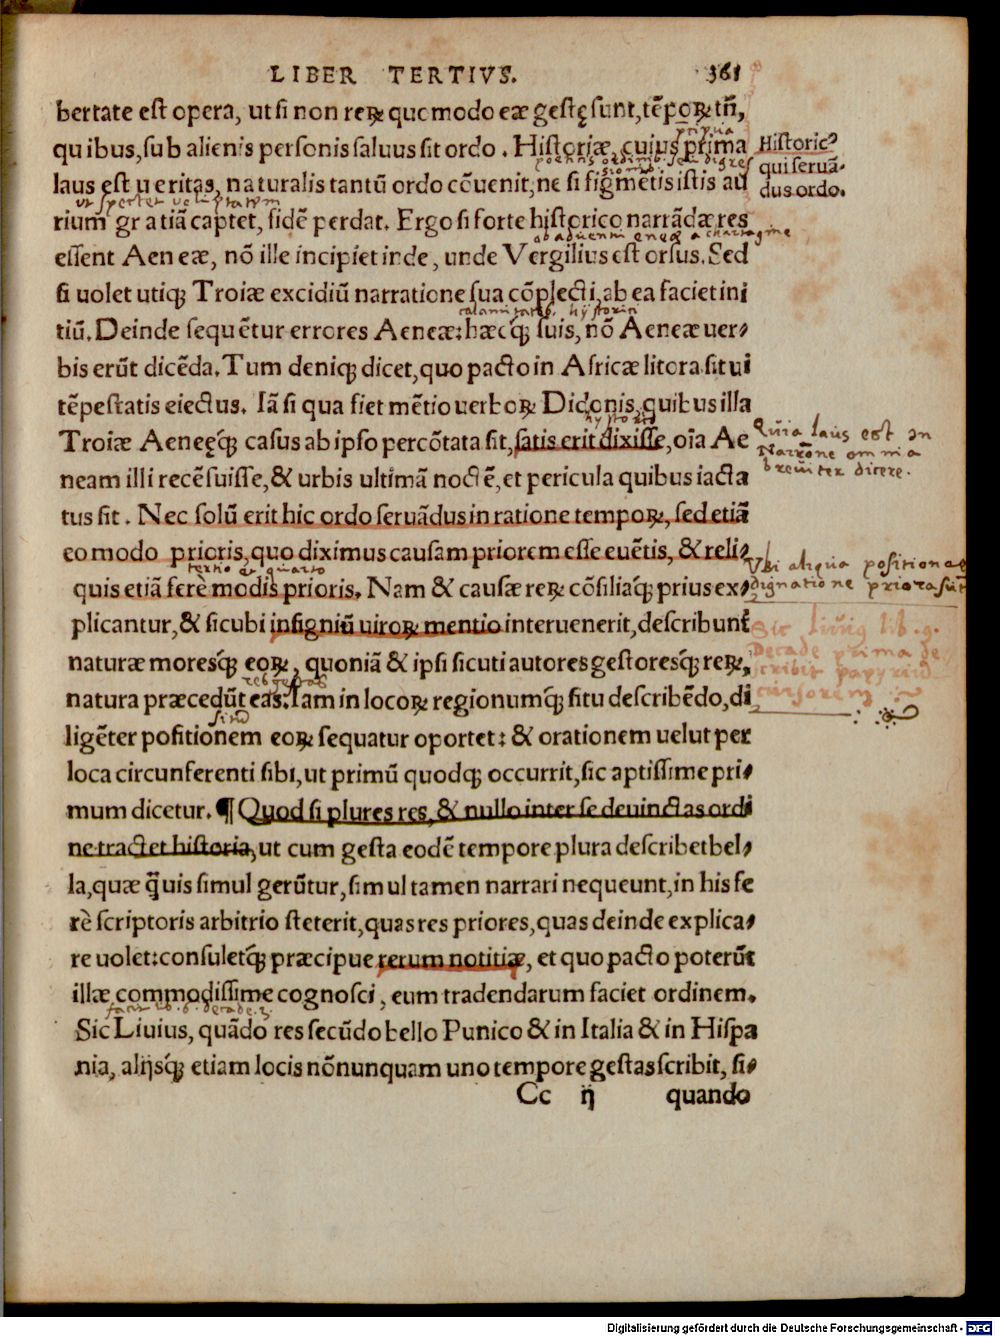 LIBER TERTIVS.
361
bertate est opera, ut si non reꝝ quomodo eæ gestę sunt, tẽpoꝝ tñ,
quibus, sub alienis personis saluus sit ordo. Historiæ, cuius prima
propria
Historicꝰ
qui seruã-
dus ordo.
laus est ueritas, naturalis tantũ ordo cõuenit, ne si figmẽtis istis au
rium gratiã captet, fidẽ perdat. Ergo si forte historico narrãdæ res
essent Aeneæ, nõ ille incipiet inde, unde Vergilius est orsus. Sed
si uolet utiqꝫ Troiæ excidiũ narratione sua cõplecti, ab ea faciet ini
tiũ. Deinde sequẽtur errores Aeneæ: hæcqꝫ suis, nõ Aeneæ uer/
historia
bis erũt dicẽda. Tum deniqꝫ dicet, quo pacto in Africæ litora sit ui
tẽpestatis eiectus. Iã si qua fiet mẽtio uerboꝝ Didonis, quibus illa
Troiæ Aeneęq́ꝫ casus ab ipso percõtata sit, satis erit dixisse, oĩa Ae
hystorico
Quia laus est in
Narrone omnia
breuiter dicere.
neam illi recẽsuisse, & urbis ultimã noctẽ, et pericula quibus iacta
tus sit. Nec solũ erit hic ordo seruãdus in ratione tempoꝝ, sed etiã
eo modo prioris, quo diximus causam priorem esse euẽtis, & reli/
quis etiã ferè modis prioris. Nam & causæ reꝝ cõsiliaq́ꝫ prius ex/
tertio et quarto
Vbi aliqua positione
dignatione priora sũt
plicantur, & sicubi insigniũ uiroꝝ mentio interuenerit, describunt́
naturæ moresq́ꝫ eoꝝ, quoniã & ipsi sicuti autores gestoresq́ꝫ reꝝ,
Sic Liuius lib. 9.
Decade prima de
scribit papyriũ
cursorem
natura præcedũt eas. Iam in locoꝝ regionumq́ꝫ situ describẽdo, di
res gestas
ligẽter positionem eoꝝ sequatur oportet: & orationem uelut per
situs
loca circunferenti sibi, ut primũ quodqꝫ occurrit, sic aptissime pri/
mum dicetur. ¶ Quod si plures res, & nullo inter se deuinctas ordi
ne tractet historia, ut cum gesta eodẽ tempore plura describet bel/
la, quæ q̃uis simul gerũtur, simul tamen narrari nequeunt, in his fe
rè scriptoris arbitrio steterit, quas res priores, quas deinde explica/
re uolet: consuletq́ꝫ præcipue rerum notitiæ, et quo pacto poterũt
illæ commodissime cognosci, eum tradendarum faciet ordinem.
Sic Liuius, quãdo res secũdo bello Punico & in Italia & in Hispa
nia, alijsq́ꝫ etiam locis nõnunquam uno tempore gestas scribit, si/
Cc ij
quando
Digitalisierung gefördert durch die Deutsche Forschungsgemeinschaft - DFG